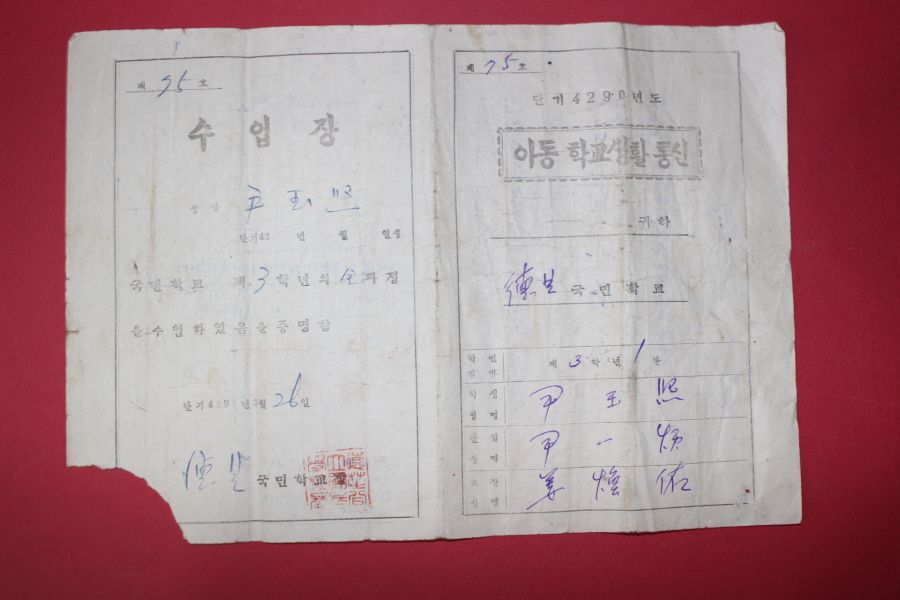 제 75 호
수업장
성명 尹玉熙
단기42 년 월 일생
국민학교 제3학년의 全과정
을 수업하였음을 증명함
단기429 년 3월 26일
德 국민학교
제 75 호
단기4290년도
아동 학교생활통신
귀하
德 국민학교
학년 제 3 학년 1 반
학생 성명 尹玉熙
담임 성명 尹一
교장 성명 姜 佑